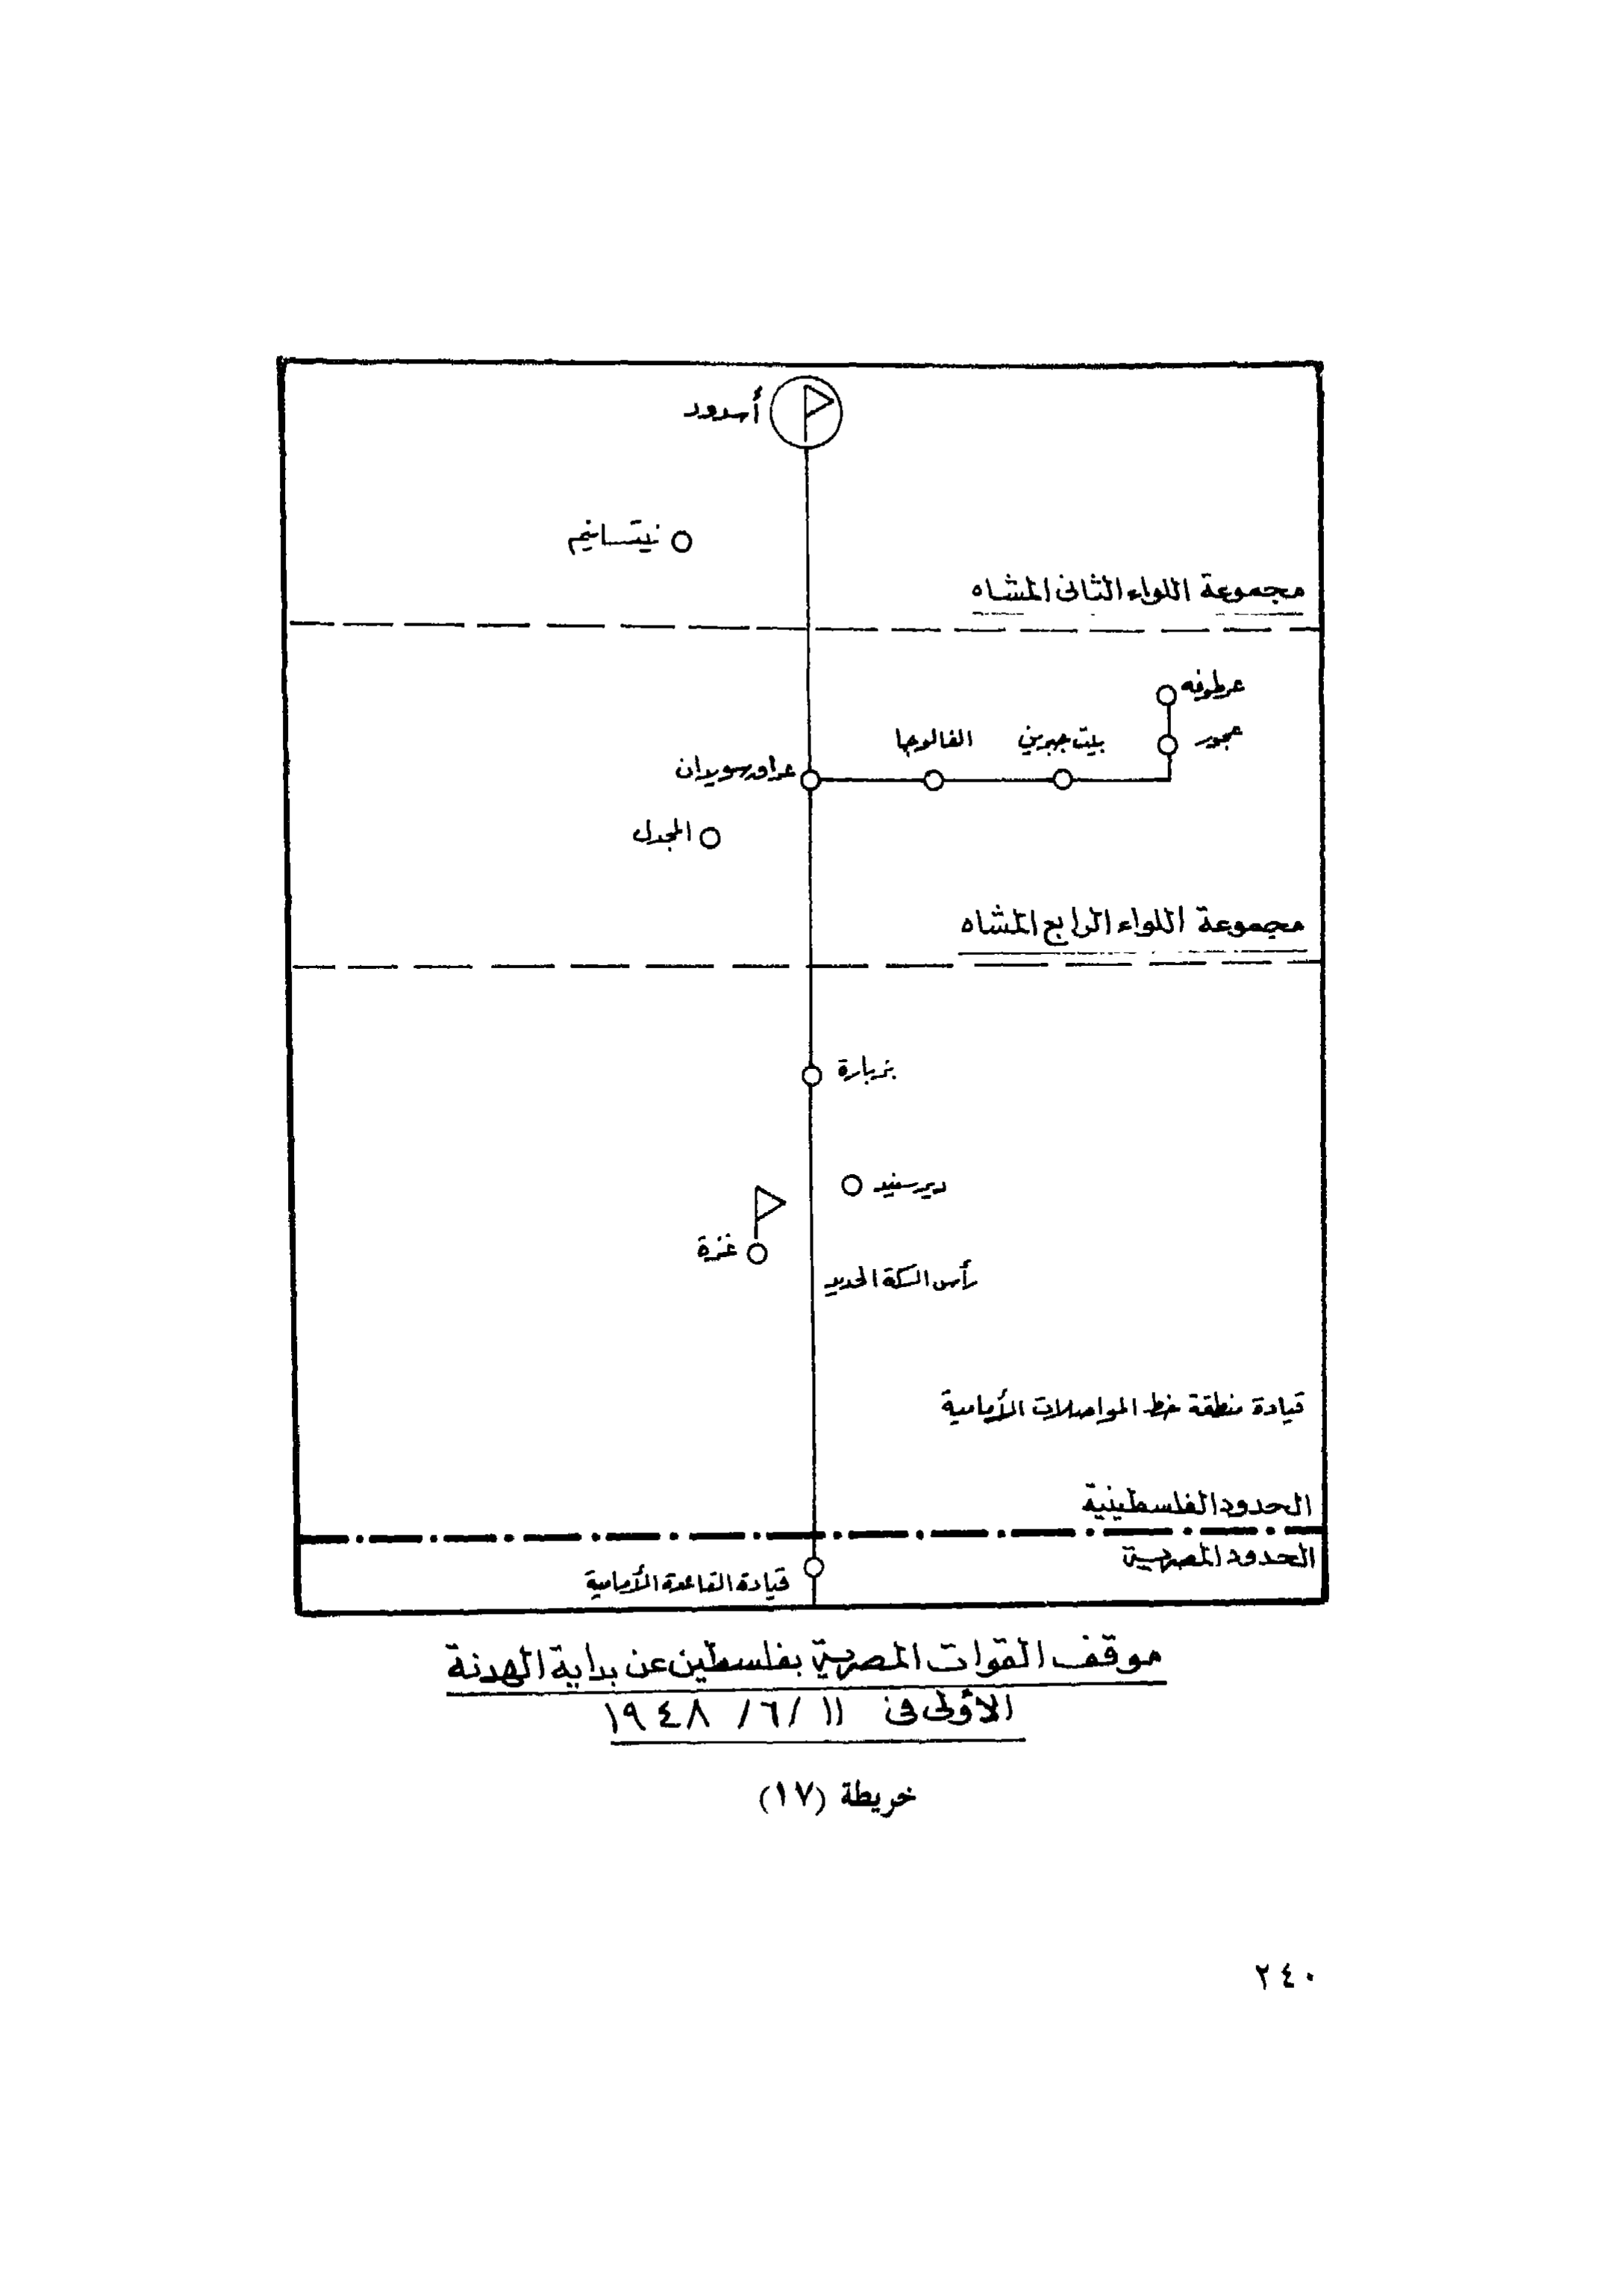 أسدود
نيتسانيم
مجموعة اللواء الثانى المشاه
عرطوفه
عجور
بيت جبرين
الفالوجا
عراق سويدان
المجدل
مجموعة اللواء الرابع المشاه
بربارة
دير سنيد
غزة
رأس السكة الحديد
قيادة منطقة خط المواصلات الأمامية
الحدود الفلسطينية
الحدود المصرية
قيادة القاعدة الأمامية
موقف القوات المصرية بفلسطين عن بداية الهدنة
الأولى فى ١١ /٦/ ١٩٤٨
خريطة (١٧)
٢٤٠